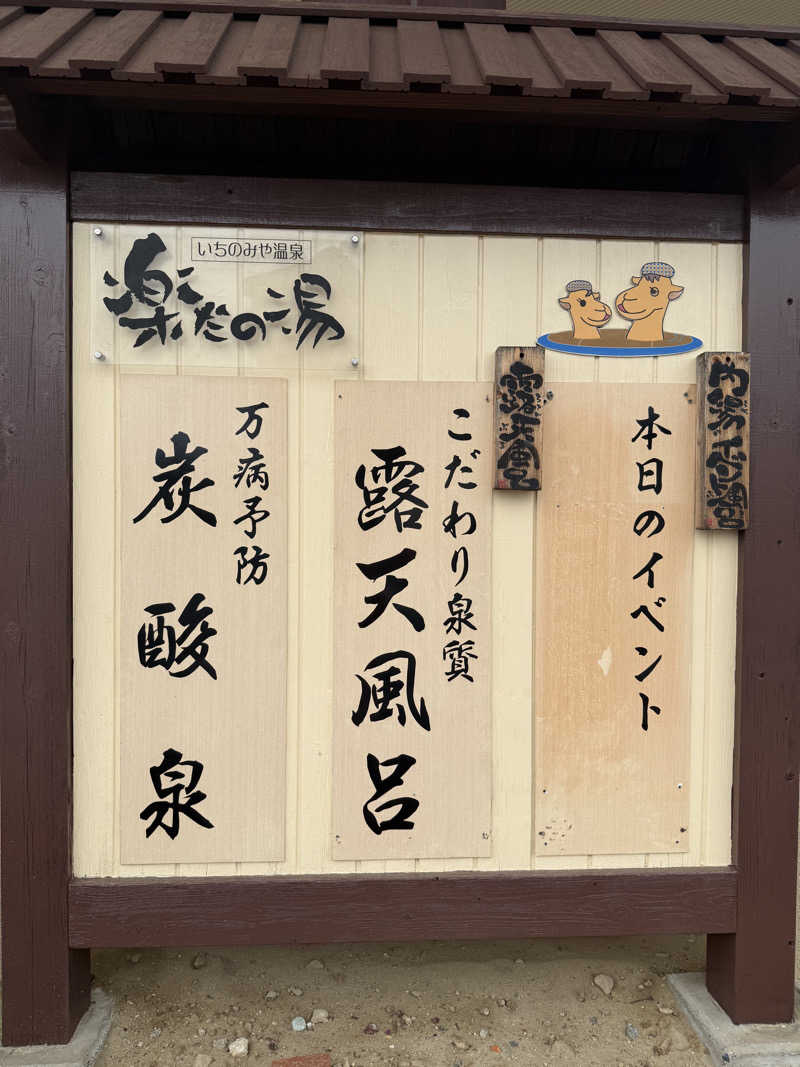 いちのみや温泉
楽だの湯
本日のイベント
こだわり泉質
露天風呂
万病予防
炭酸泉
露天風呂